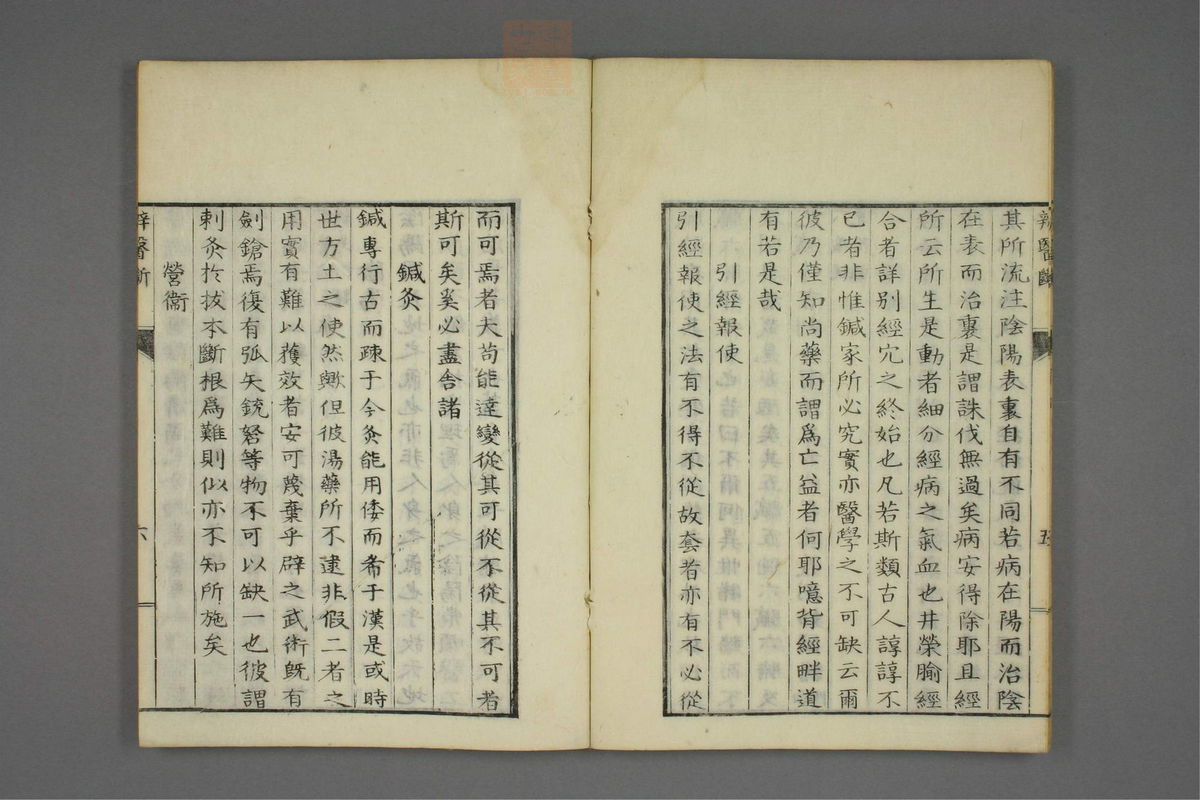 辨醫斷
五
其所流注陰陽表裏自有不同若病在陽而治陰
在表而治裏是謂誅伐無過矣病安得除耶且經
所云所生是動者細分經病之氣血也井榮腧經
合者詳別經穴之終始也凡若斯類古人諄諄不
已者非惟鍼家所必究實亦醫學之不可缺云爾
彼乃僅知尚藥而謂爲亡益者何耶噫背經畔道
有若是哉
引經報使
引經報使之法有不得不從故套者亦有不必從
而可焉者夫苟能達變從其可從不從其不可者
斯可矣奚必盡舍諸
鍼灸
鍼專行古而疎于今灸能用倭而希于漢是或時
世方土之使然歟但彼湯藥所不逮非假二者之
用實有難以獲效者安可蔑棄乎辟之武術旣有
劍鎗焉復有弧矢銃弩等物不可以缺一也彼謂
刺灸於拔本斷根爲難則似亦不知所施矣
營衞
辨醫斷
六